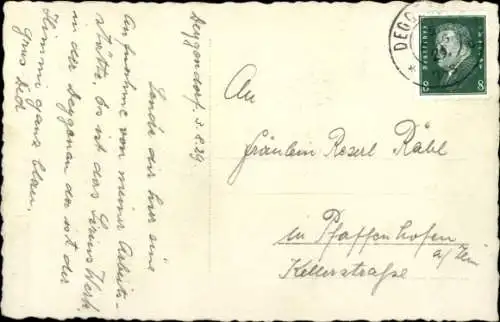 Deggendorf, 5.8.29.
Sende dir hier eine
Aufnahme von meiner Arbeits-
stätte. Es ist das Werk
in der Deggenau da ist der
Himmi ganz blau.
Gruss
DEGG
DEUTSCHES
8
An
Fräulein Reserl Räbl
in Pfaffenhofen
a/ Ilm
Kellerstraße